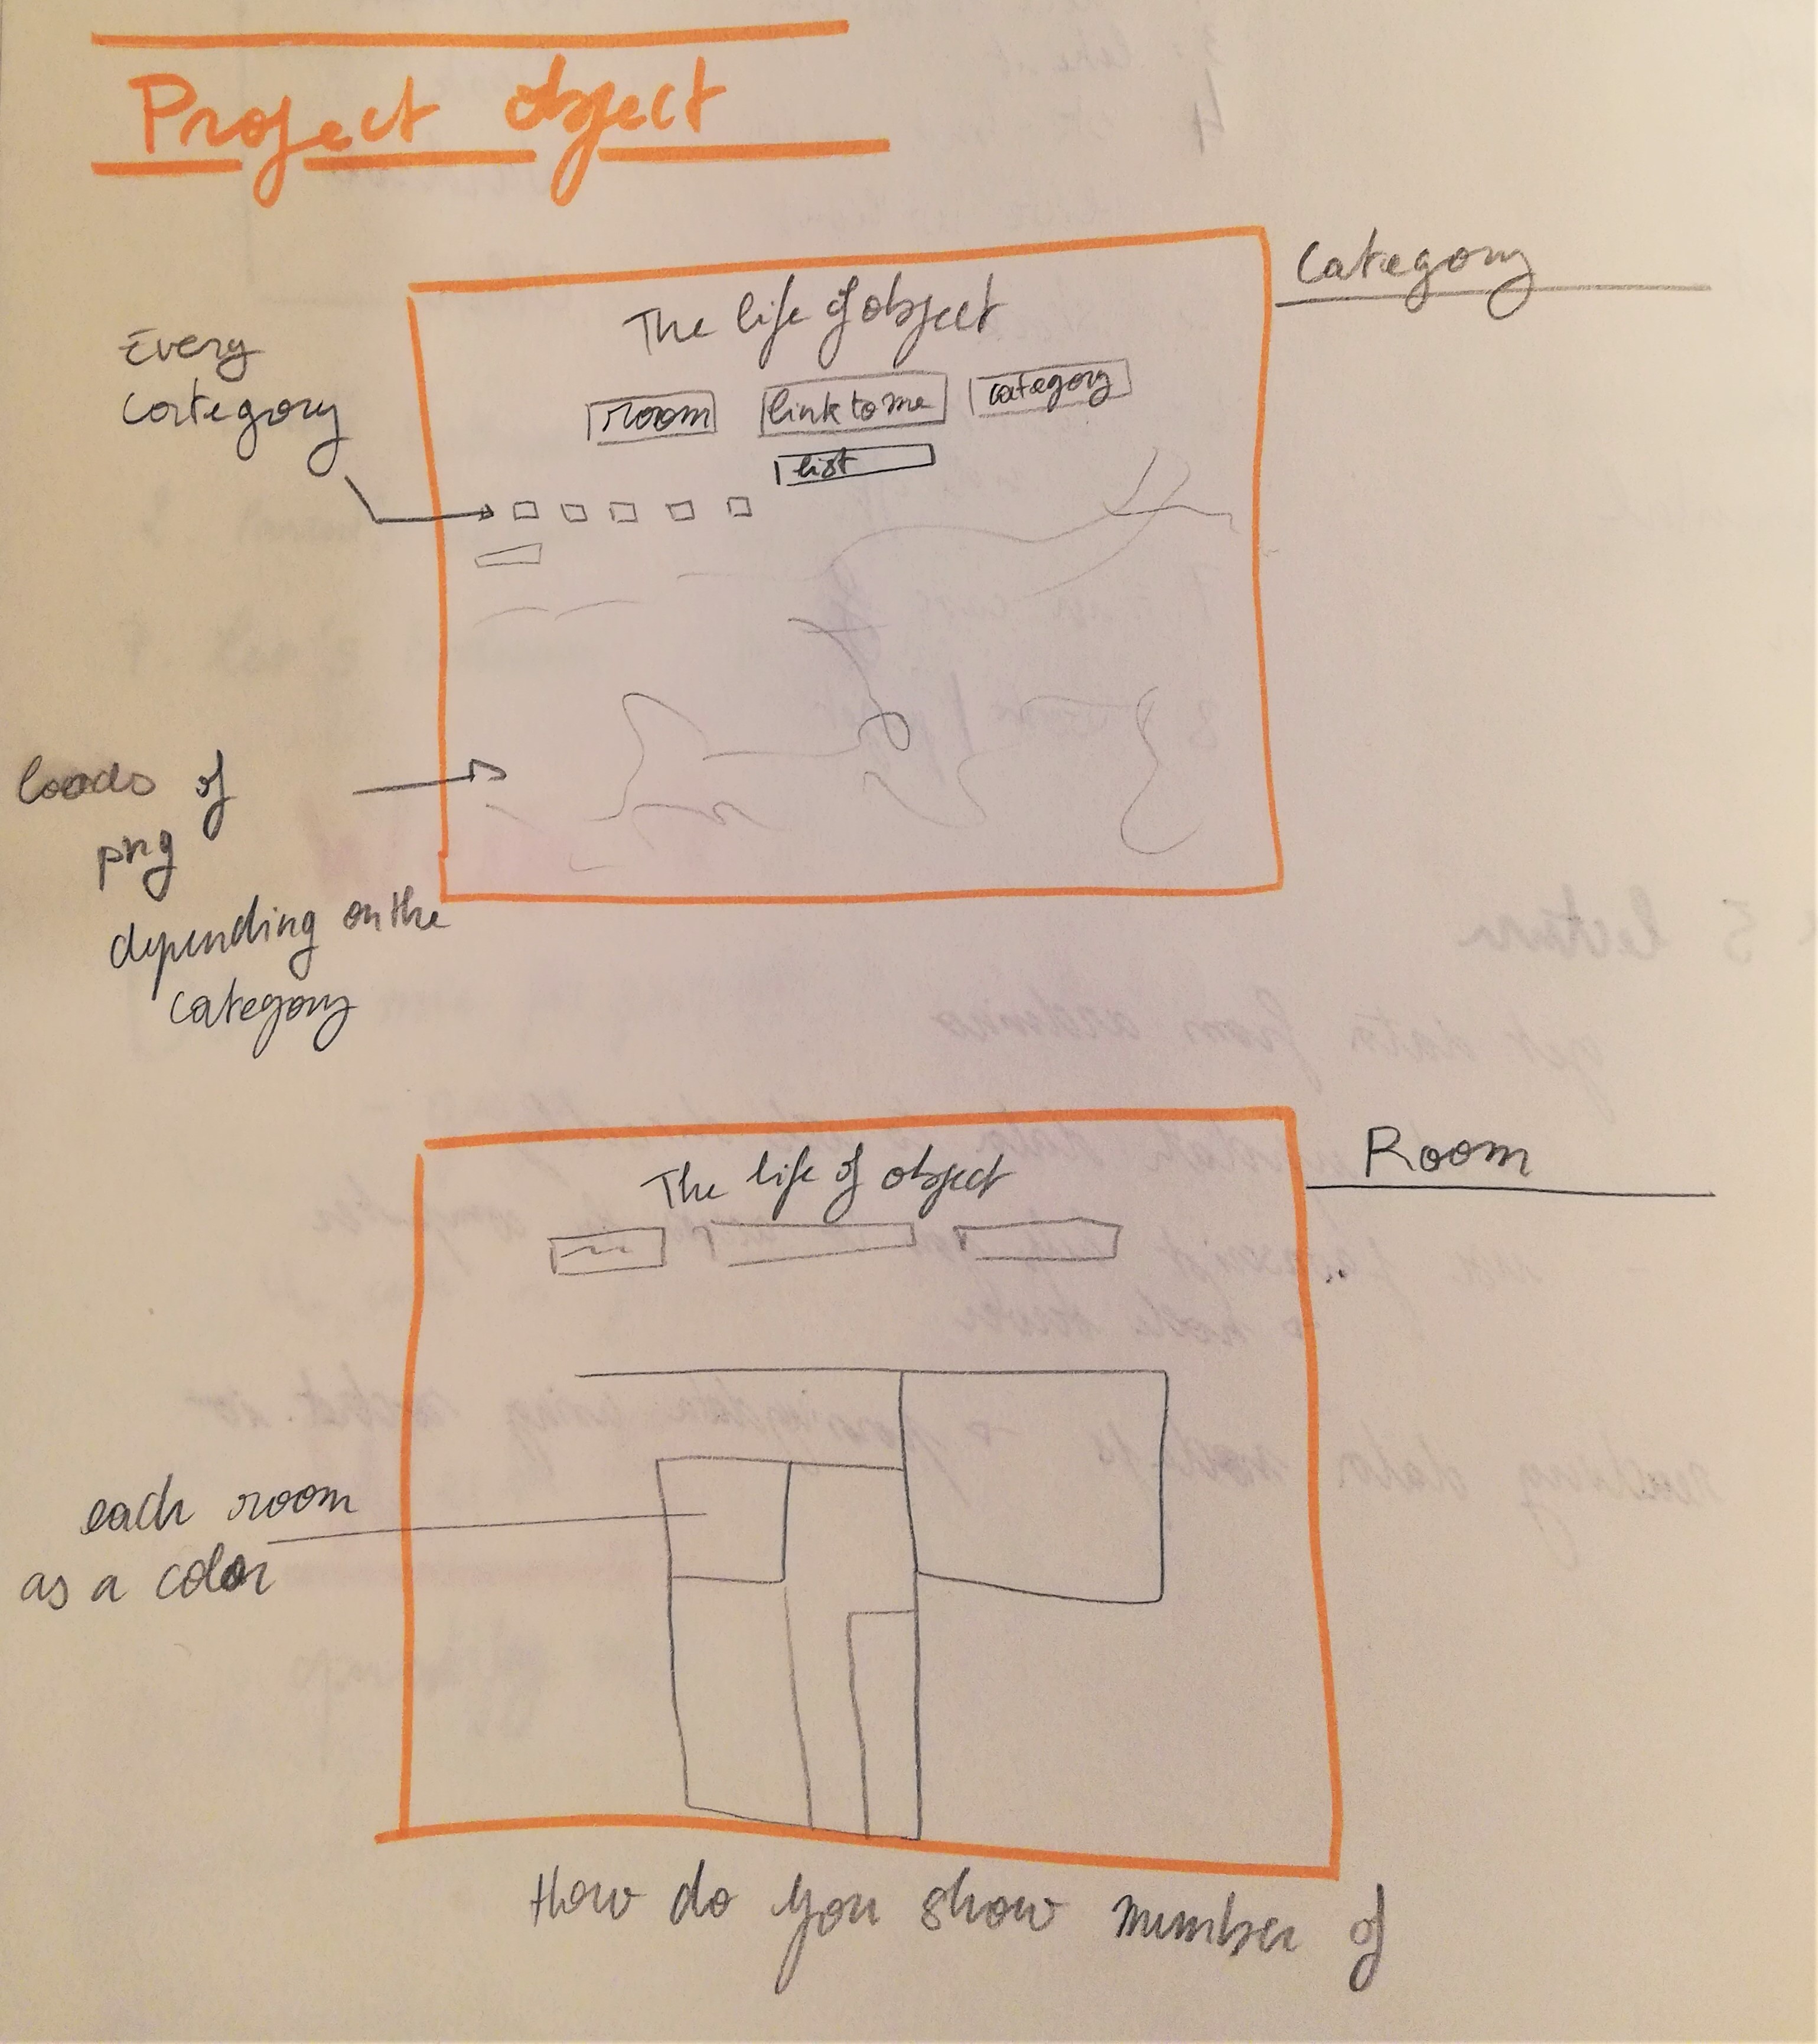 Project object
Category
The life of object
Every
category
room
link to me
category
list
loads of
png
depending on the
category
Room
The life of object
each room
as a color
How do you show number of